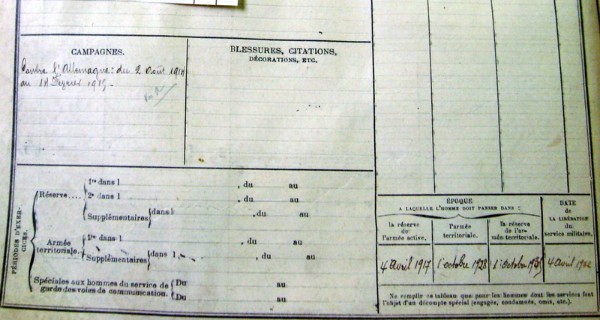 CAMPAGNES.
Contre l'Allemagne: du 2 Août 1914
au 14 Février 1919.
BLESSURES, CITATIONS,
DÉCORATIONS, ETC.
PÉRIODES D'EXER-
CICES.
Réserve....
1re dans l , du au
2e dans l , du au
Supplémentaires dans l , du au
Armée
territoriale.
1re dans l , du au
Supplémentaires dans l , du au
Spéciales aux hommes du service de
garde des voies de communication.
Du au
Du au
ÉPOQUE
A LAQUELLE L'HOMME DOIT PASSER DANS :
la réserve
de
l'armée active.
l'armée
territoriale.
la réserve
de l'ar-
mée territoriale.
DATE
de
LA LIBÉRATION
du
service militaire.
4 avril 1917
1 octobre 1928
1 Octobre
4 avril
Ne remplir ce tableau que pour les hommes dont les services font
l'objet d'un décompte spécial (engagés, condamnés, omis, etc.).